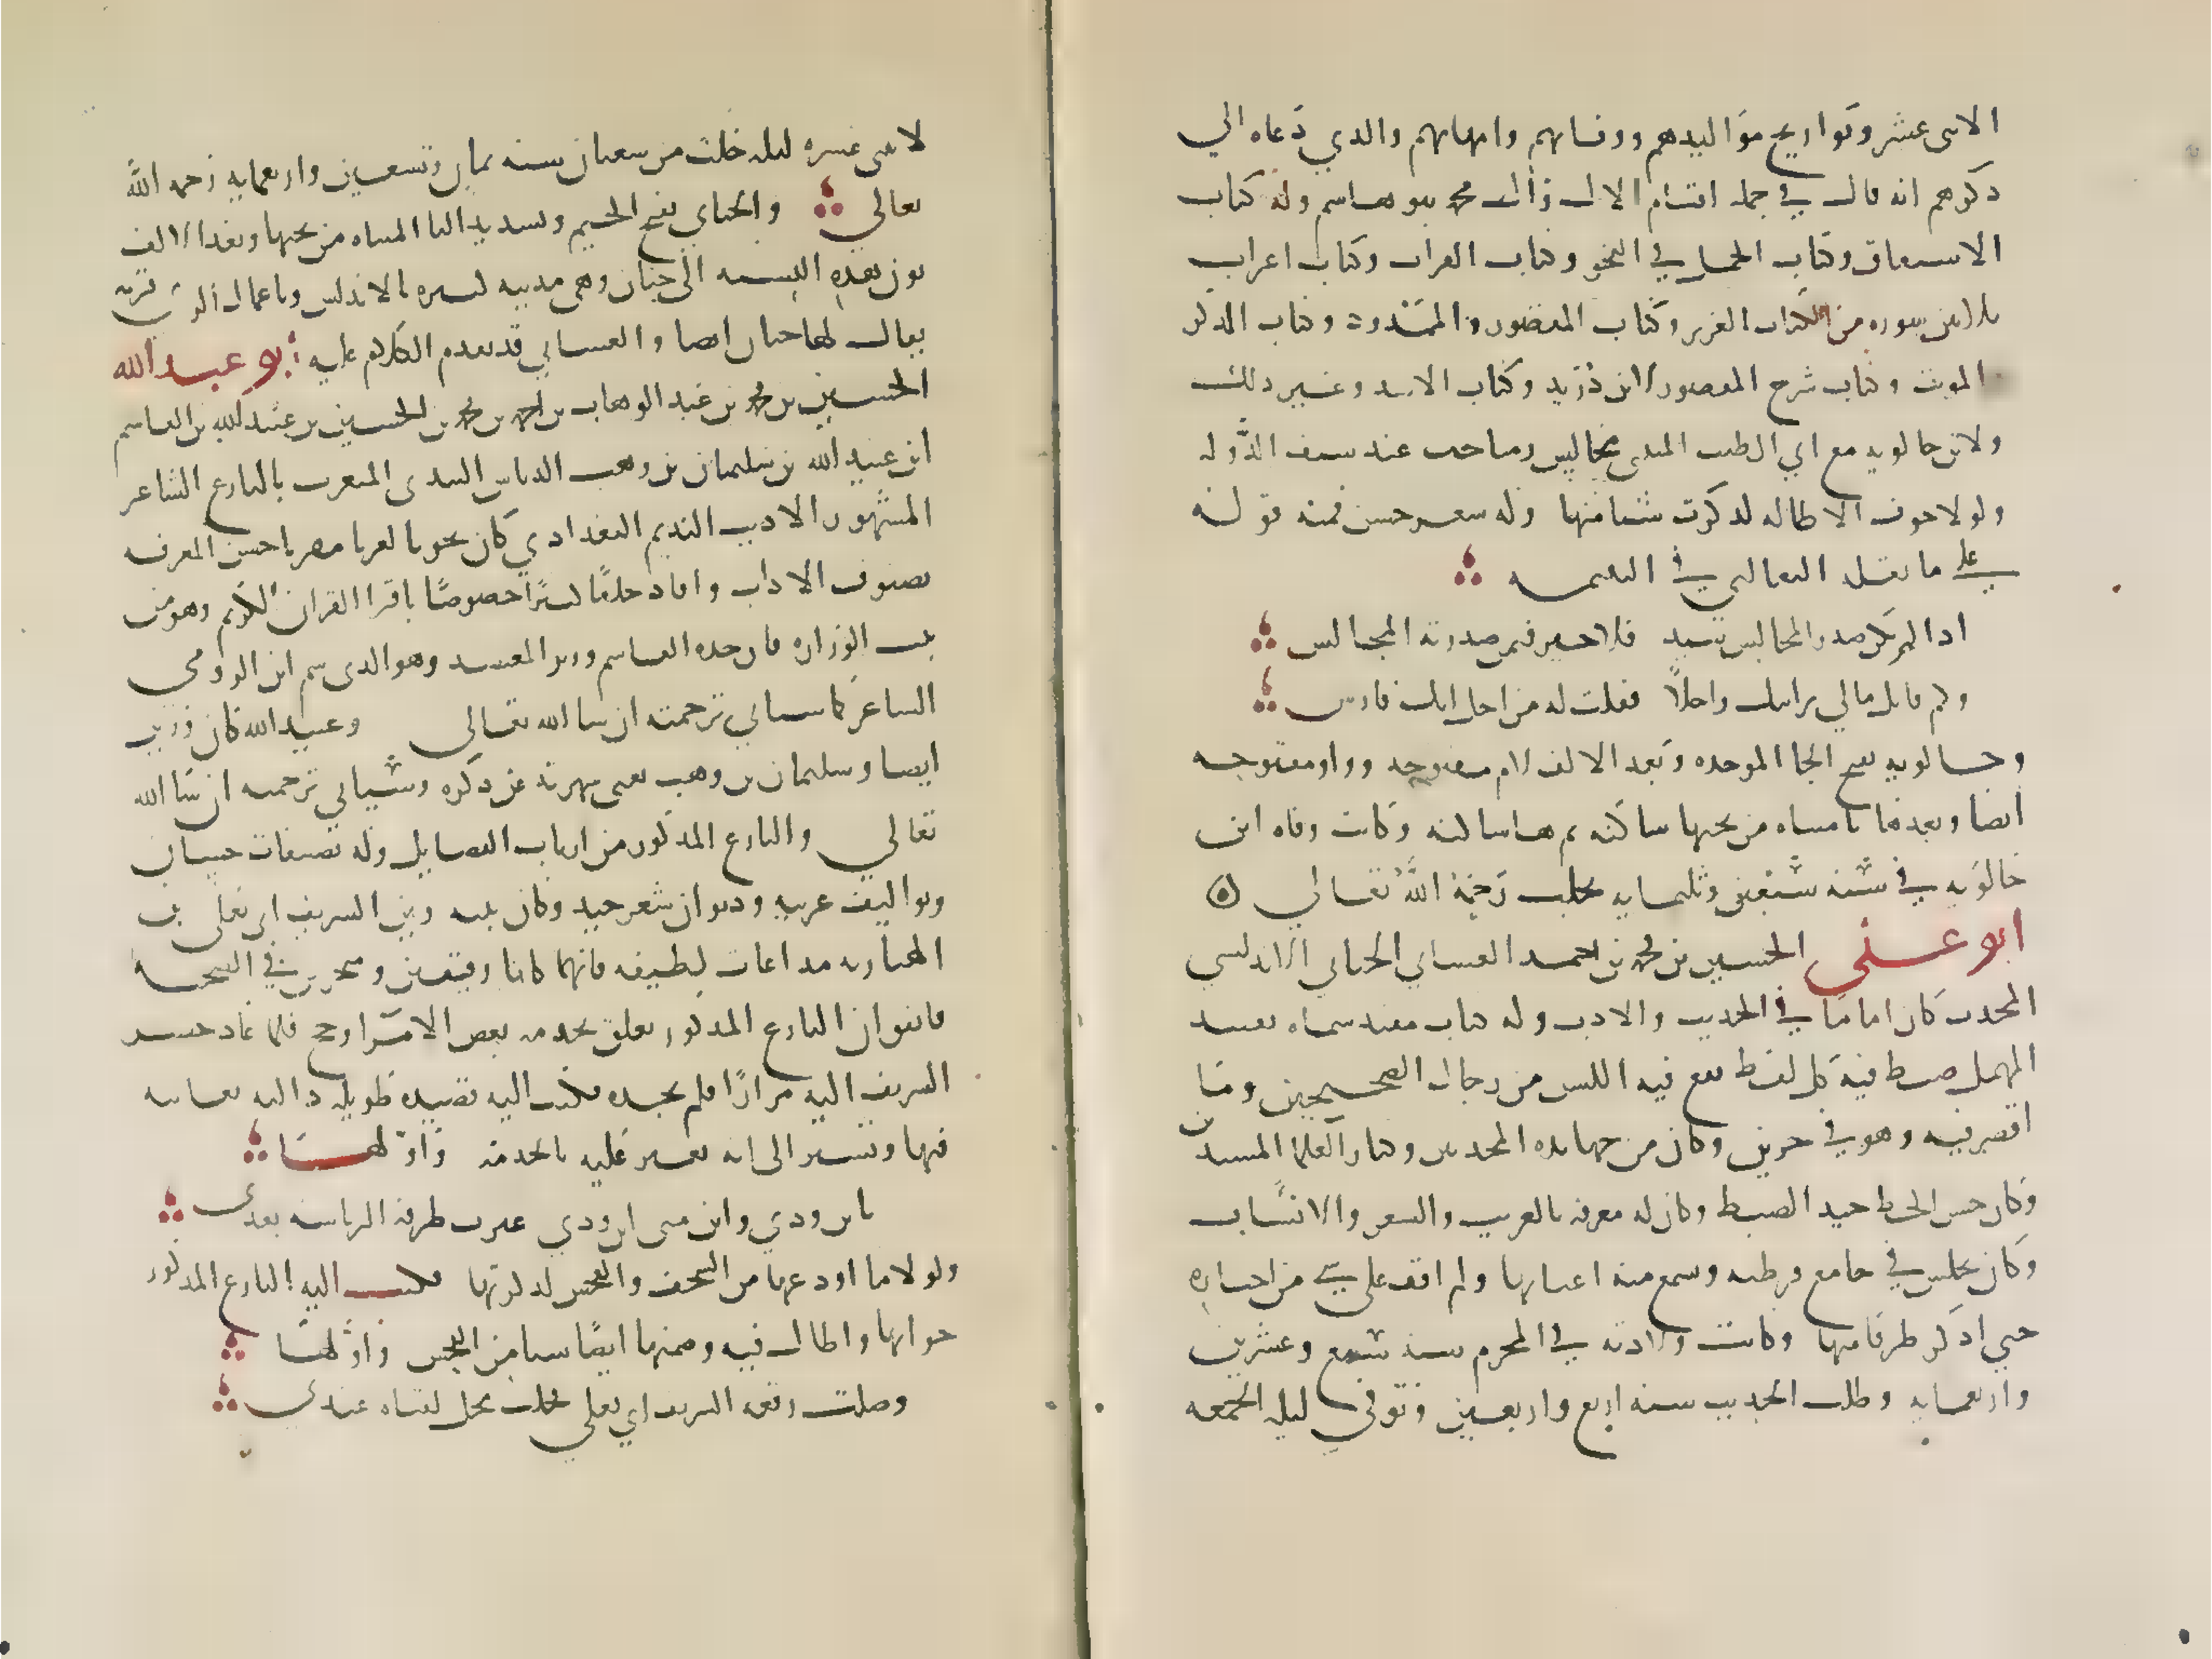 الاثنى عشر وتواريخ مواليدهم ووفاتهم وامهاتهم والذي دعاه الي
ذكرهم انه قال في جملة اقسام الال وآل محمد بنو هاشم وله كتاب
الاشتقاق وكتاب الجمل في النحو وكتاب القراات وكتاب اعراب
ثلاثين سورة من الكتاب العزيز وكتاب المقصور والممدود وكتاب المذكر
والمونث وكتاب شرح المقصورة لابن دريد وكتاب الاسد وغير ذلك
ولابن خالويه مع ابي الطيب المتنبي مجالس ومباحث عند سيف الدولة
ولولا خوف الاطالة لذكرت شيا منها وله شعر حسن فمنه قوله
على ما نقله الثعالبي في اليتيمة
اذا لم يكن صدر المجالس سيد فلا خير فيمن صدرته المجالس
وكم قايل مالي رايتك راجلاً فقلت له من اجل انك فارس
وخالويه بفتح الخا الموحدة وبعد الالف لام مفتوحة وواو مفتوحة
ايضا وبعدها يا مثناه من تحتها ساكنة ثم ها ساكنة وكانت وفاة ابن
خالويه في سنة سبعين وثلثماية بحلب رحمة الله تعالي
ابو علي الحسين بن محمد بن احمد الغساني الجياني الاندلسي
المحدث كان اماما في الحديث والادب وله كتاب مفيد سماه تقييد
المهمل ضبط فيه كل لفظ يقع فيه اللبس من رجال الصحيحين وما
اقصر فيه وهو في جزين وكان من جهابذة المحدثين وكبار العلما المسندين
وكان حسن الخط جيد الضبط وكان له معرفة بالغريب والشعر والانساب
وكان يجلس في جامع قرطبة وسمع منه اعيانها ولم اقف علي شي من اخباره
حتي اذكر طرفا منها وكانت ولادته في المحرم سنة سبع وعشرين
واربعماية وطلب الحديث سنة اربع واربعين وتوفي ليلة الجمعة
لاثنى عشرة ليلة خلت من شعبان سنة ثمان وتسعين واربعماية رحمه الله
تعالي والجياني بفتح الجيم وتشديد اليا المثناه من تحتها وبعد الالف
نون هذه النسبة الى جيان وهى مدينة كبيرة بالاندلس وباعمال الري قرية
يقال لها جيان ايضا والغساني قد تقدم الكلام عليه ابو عبد الله
الحسين بن محمد بن عبد الوهاب بن احمد بن محمد بن الحسين بن عبيد الله بن القاسم
ابن عبيد الله بن سليمان بن وهب الدباس البدرى المنعوت بالبارع الشاعر
المشهور الاديب النديم البغدادي كان نحويا لغويا مقريا حسن المعرفة
بصنوف الاداب وافاد خلقًا كثيرًا خصوصًا باقرا القران الكريم وهو من
بيت الوزارة فان جده القاسم وزير المعتضد وهو الذى سم ابن الرومي
الشاعر كما سياتي ترجمته ان شا الله تعالى وعبيد الله كان وزير
ايضا وسليمان بن وهب تغنى شهرته عن ذكره وسياتي ترجمته ان شا الله
تعالي والبارع المذكور من ارباب الفضايل وله تصنفات حسان
وتواليف غريبة وديوان شعر جيد وكان بينه وبين الشريف ابي يعلى بن
الهبارية مداعبات لطيفة فانهما كانا رفيقين ومتحدين في الصحبة
فاتفق ان البارع المذكور تعلق بخدمة بعض الامرا وحج فلما عاد حضر
الشريف اليه مرارًا فلم يجده فكتب اليه قصيدة طويلة دالية يعاتبه
فيها ويشير الى انه تغير عليه بالخدمة واولها
يابن ودي واين منى ابن ودي غيرت طرفه الرياسة بعدى
ولولا ما اودعها من السخف والفحش لذكرتها فكتب اليه البارع المذكور
جوابها واطال فيه وضمنها ايضًا شيا من الفحش واولها
وصلت رقعة الشريف ابي يعلي فحلت محل لقياه عندى